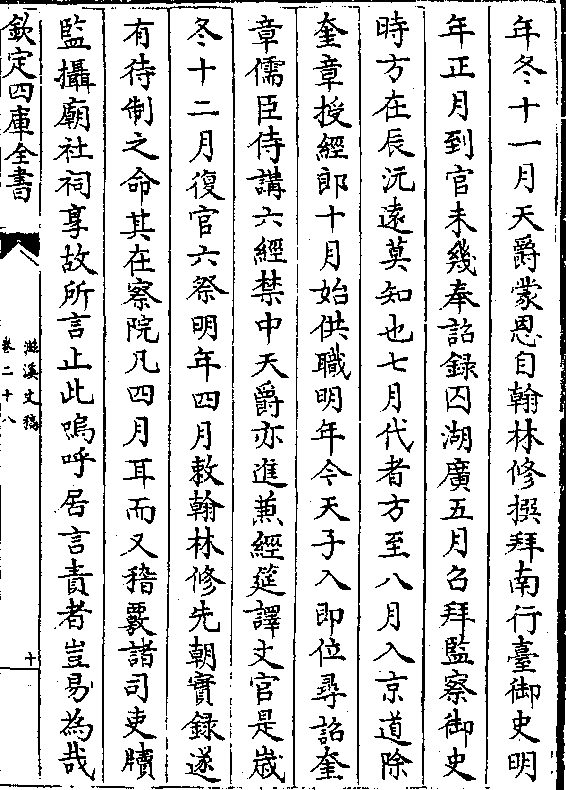 年冬十一月天爵蒙恩自翰林修撰拜南行臺御史明
年正月到官未幾奉詔録囚湖廣五月召拜監察御史
時方在辰沅遠莫知也七月代者方至八月入京道除
奎章授經郎十月始供職明年今天子入即位尋詔奎
章儒臣侍講六經禁中天爵亦進兼經筵譯文官是歳
冬十二月復官六察明年四月敕翰林修先朝實録遂
有待制之命其在察院凡四月耳而又稽覈諸司吏牘
監攝廟社祠享故所言止此嗚呼居言責者豈易為哉
欽定四庫全書
滋溪文稿
卷二十八
十